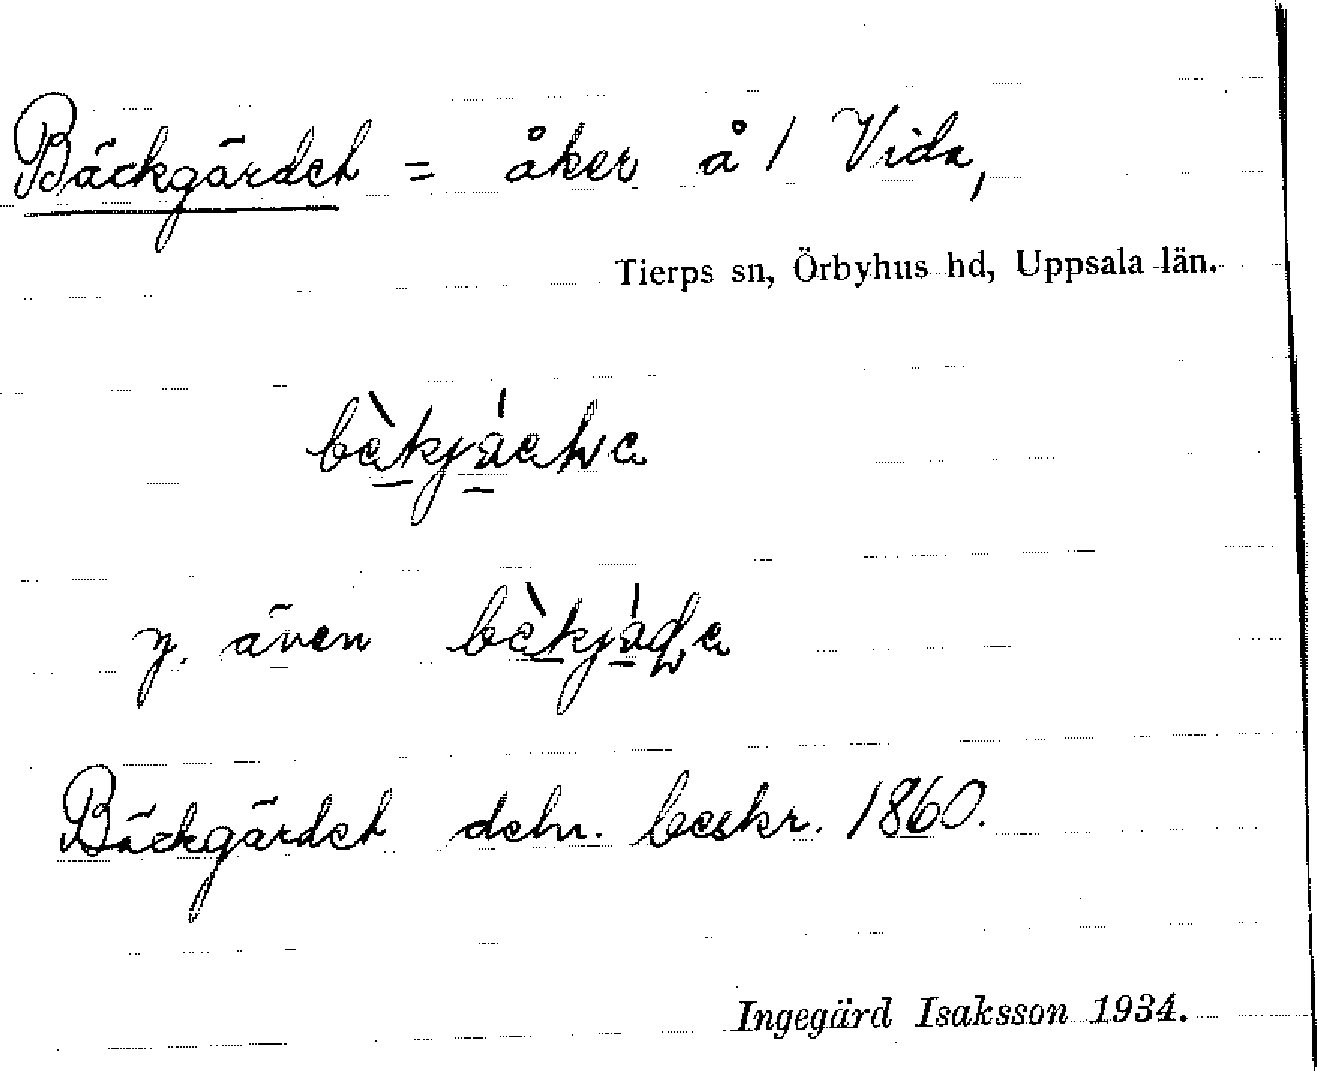 Bäckgärdet = åker å 1 Vida,
Tierps sn, Örbyhus hd, Uppsala län.
y. även
Bäckgärdet deln. beskr. 1860.
Ingegärd Isaksson 1934.